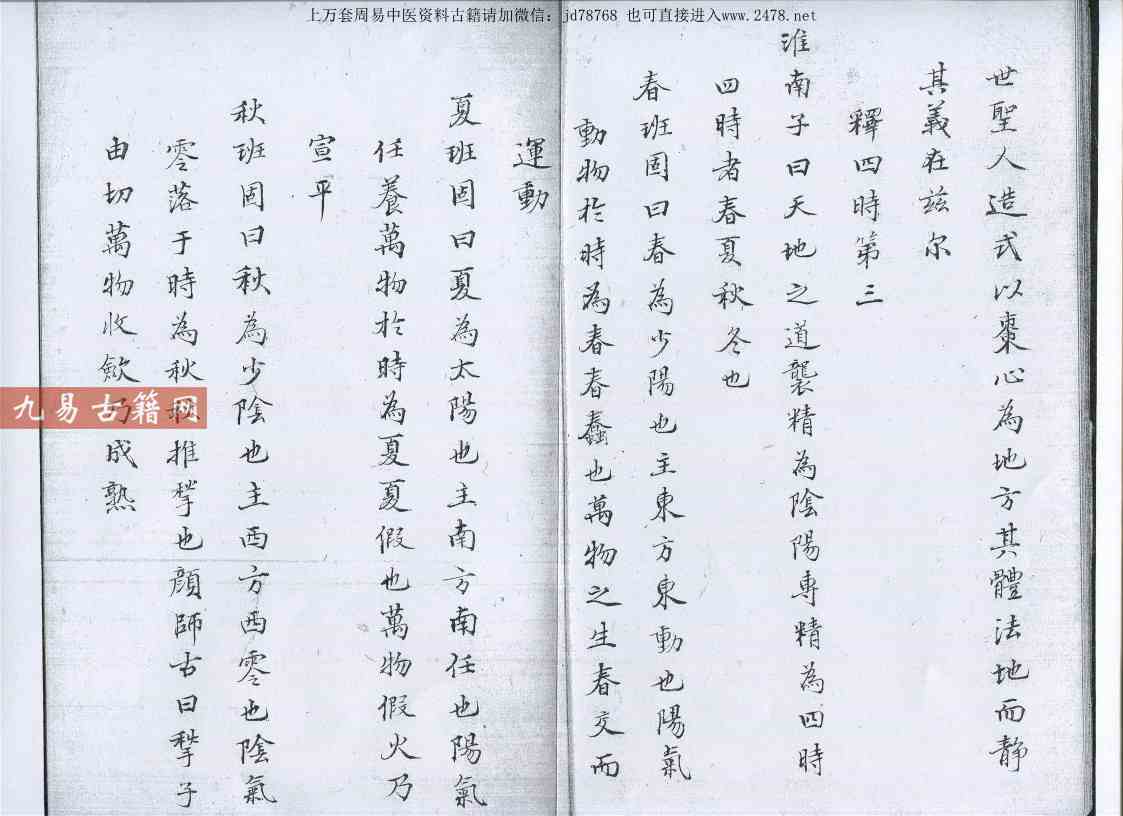 上万套周易中医资料古籍请加微信：jd78768 也可直接进入www.2478.net
世聖人造式以棗心為地方其體法地而静
其義在茲尔
釋四時第三
淮南子曰天地之道襲精為陰陽專精為四時
四時者春夏秋冬也
春班固曰春為少陽也主東方東動也陽氣
動物於時為春春蠢也萬物之生春交而
運動
夏班固曰夏為太陽也主南方南任也陽氣
任養萬物於時為夏夏假也萬物假火乃
宣平
秋班固曰秋為少陰也主西方西零也陰氣
零落于時為秋秋推揫也顔師古曰揫子
由切萬物收斂乃成熟
九易古籍网